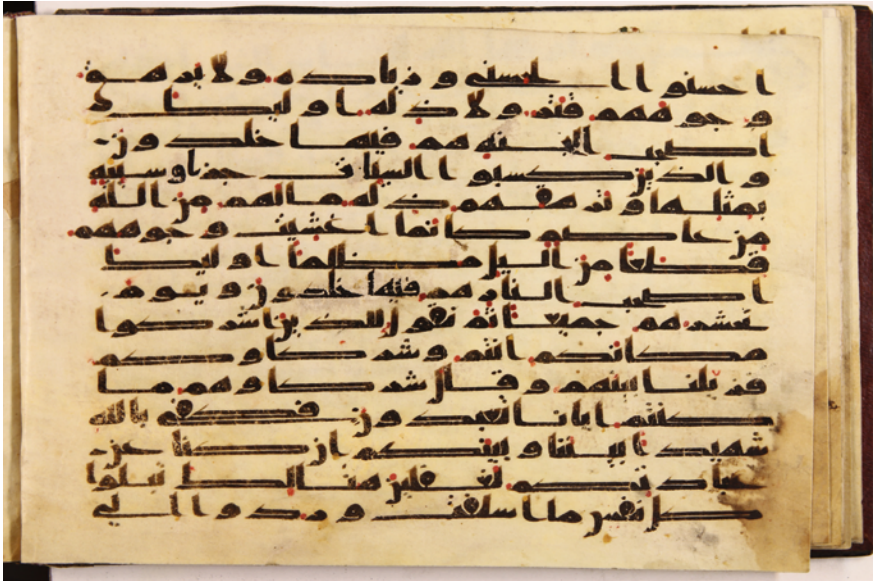 احسنوا الحسنى وزيادة ولا يرهق
وجوههم قتر ولا ذلة اوليك
اصحب الجنة هم فيها خلدون
والذين كسبوا السيات جزاو سيئة
بمثلها وترهقهم ذلة ما لهم من الله
من عاصم كانما اغشيت وجوههم
قطعا من اليل مظلما اوليك
اصحب النار هم فيها خلدون ويوم
نحشرهم جميعا ثم نقول للذين اشركوا
مكانكم انتم وشركاوكم
فزيلنا بينهم وقال شركاوهم ما
كنتم ايانا تعبدون فكفى بالله
شهيدا بيننا وبينكم ان كنا عن
عبادتكم لغفلين هنالك تبلوا
كل نفس ما اسلفت وردوا الى